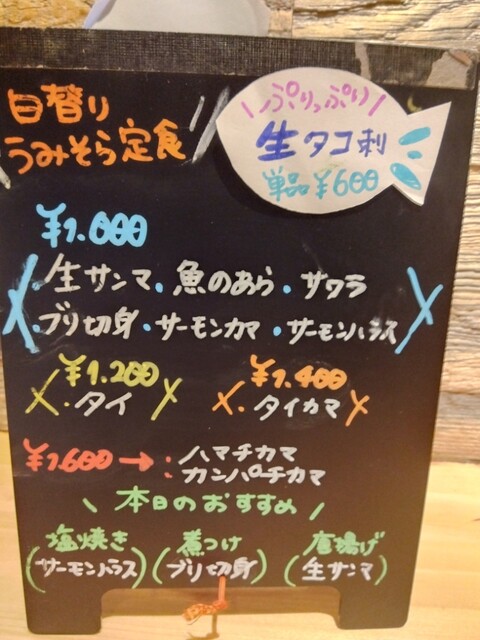 日替り
うみそら定食
ぷりっぷり
生タコ刺
単品¥600
¥1.000
生サンマ・魚のあら・サワラ
・ブリ切身・サーモンカマ・サーモンハラス
¥1.200
・タイ
¥1.400
・タイカマ
¥1600→:ハマチカマ
:カンパチカマ
本日のおすすめ
塩焼き
(サーモンハラス)
煮つけ
(ブリ切身)
唐揚げ
(生サンマ)